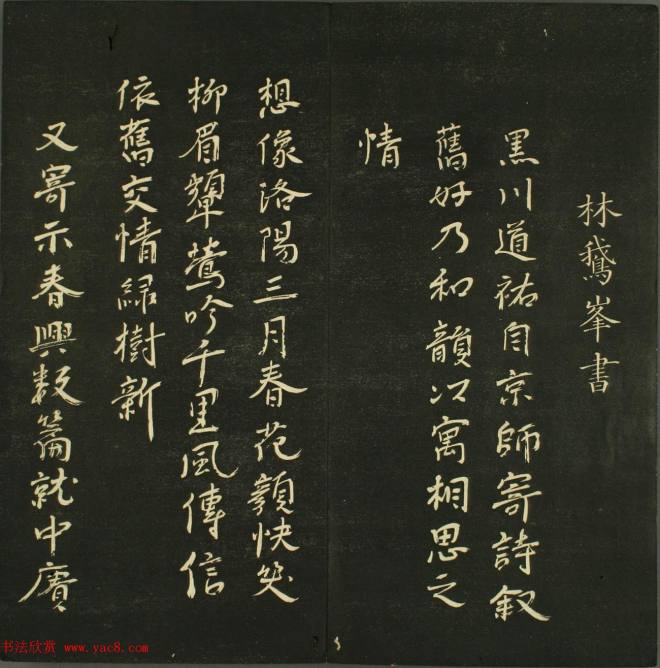 林鵞峯書
黒川道祐自京師寄詩叙
舊好乃和韻以寓相思之
情
想像洛陽三月春花顔快笑
柳眉顰鶯吟千里風傳信
依舊交情緑樹新
又寄示春興数篇就中賡
书法欣赏 www.yac8.com